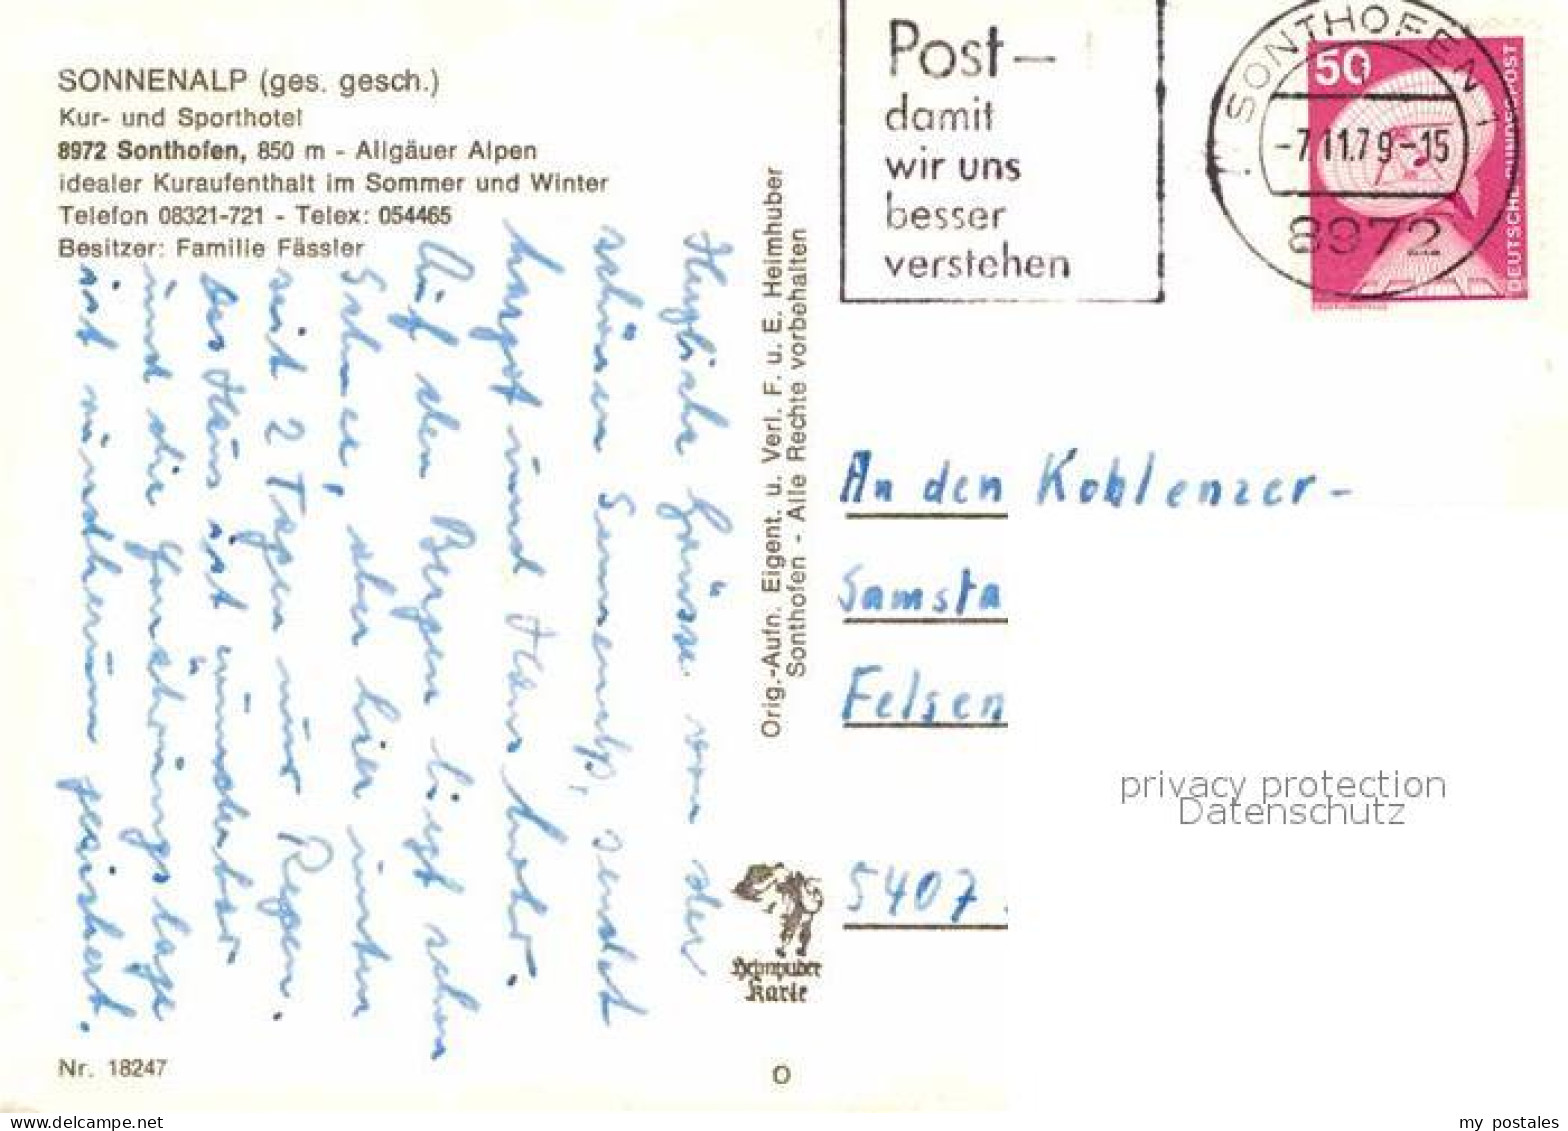 SONNENALP (ges. gesch.)
Kur- und Sporthotel
8972 Sonthofen, 850 m - Allgäuer Alpen
idealer Kuraufenthalt im Sommer und Winter
Telefon 08321-721 - Telex: 054465
Besitzer: Familie Fässler
Herzliche Grüsse von der
schönen Sonnenalp, sendet
Margot und
Auf den Bergen liegt schon
Schnee, aber hier unten
seit 2 Tagen nur Regen.
Das Haus ist wunderbar
und die
ist rundherum gesichert.
Nr. 18247
Orig.-Aufn. Eigent. u. Verl. F. u. E. Heimhuber
Sonthofen - Alle Rechte vorbehalten
Heimhuber
Karte
O
Post-
damit
wir uns
besser
verstehen
SONTHOFEN 1
-7.11.79-15
8972
50
DEUTSCHE BUNDESPOST
An den Koblenzer-
Samsta
Felsen
5407
privacy protection
Datenschutz
my postales